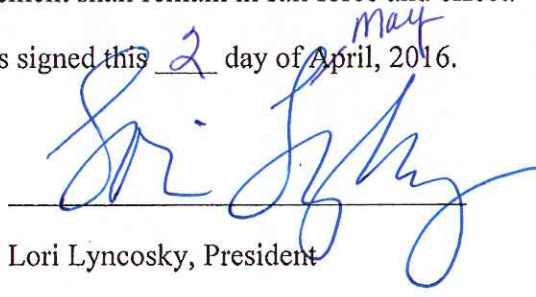 ement shall remain in full force and effect.
May
s signed this 2 day of April, 2016.
Lori Lyncosky
Lori Lyncosky, President